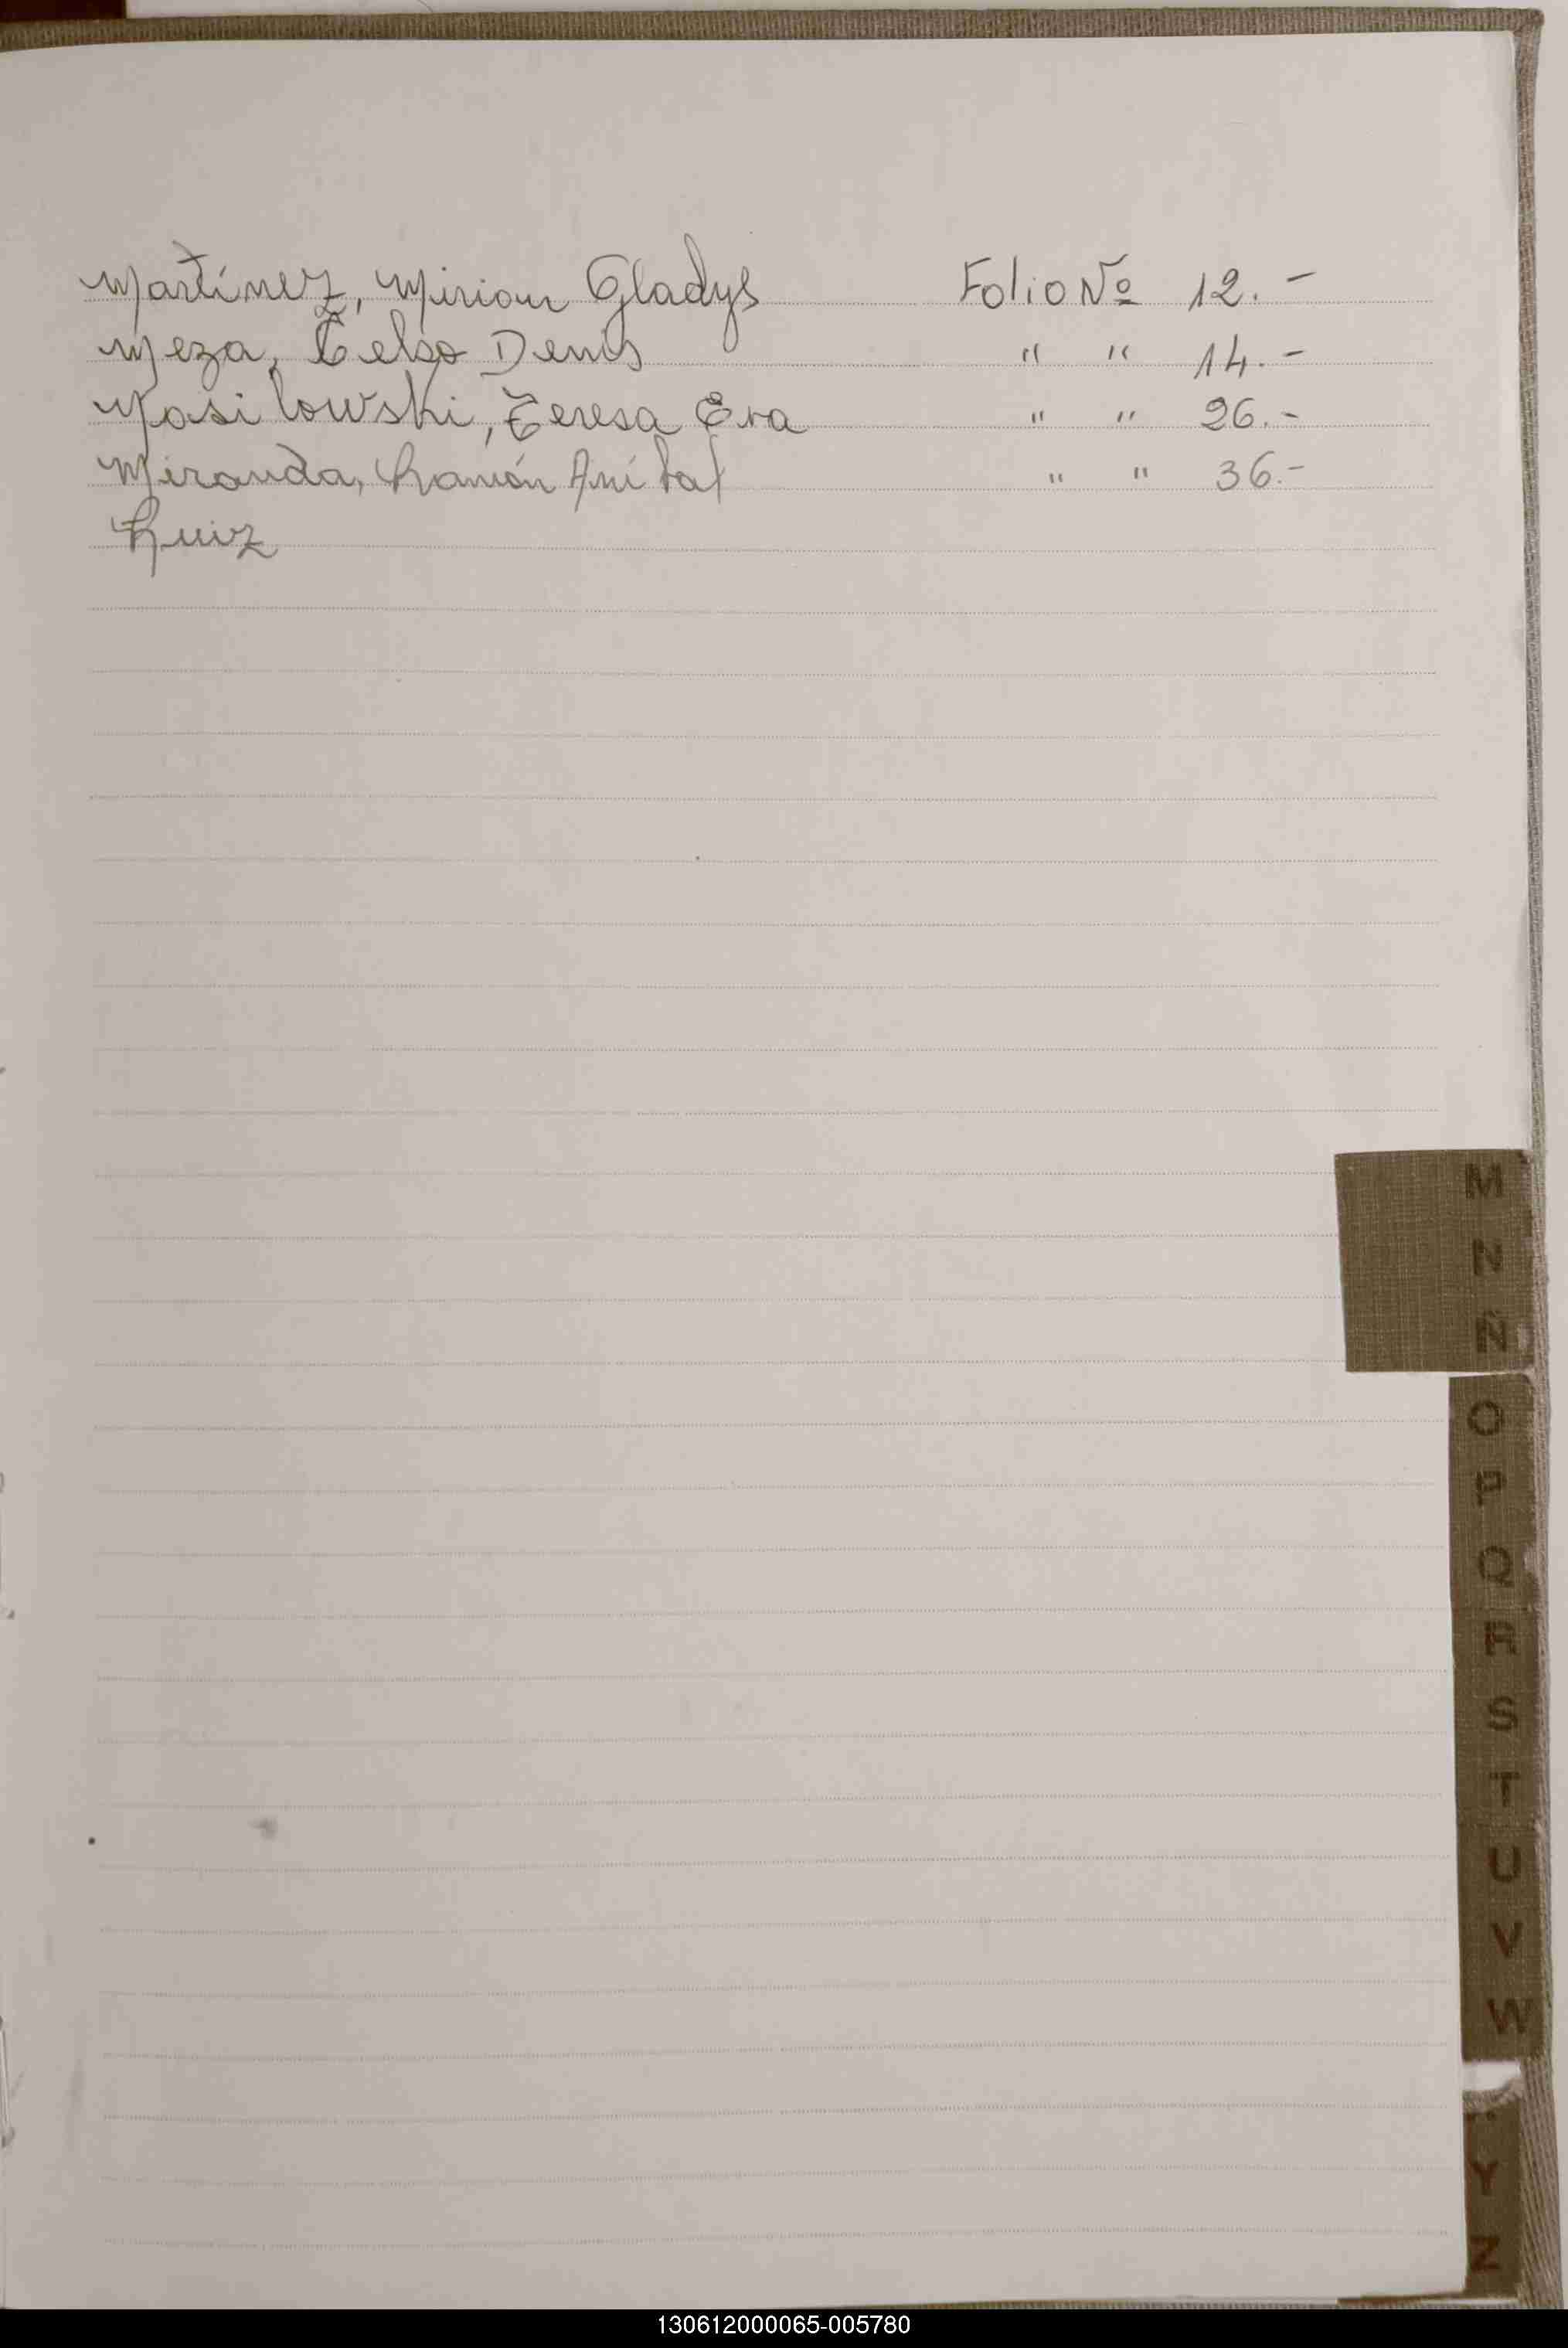 Martínez, Mirian Gladys Folio Nº 12.-
Meza, Celso Denis " " 14.-
Masilowski, Teresa Eva " " 26.-
Miranda, Ramón Aníbal " " 36.-
Ruiz
M
N
Ñ
O
P
Q
R
S
T
U
V
W
Y
Z
130612000065-005780